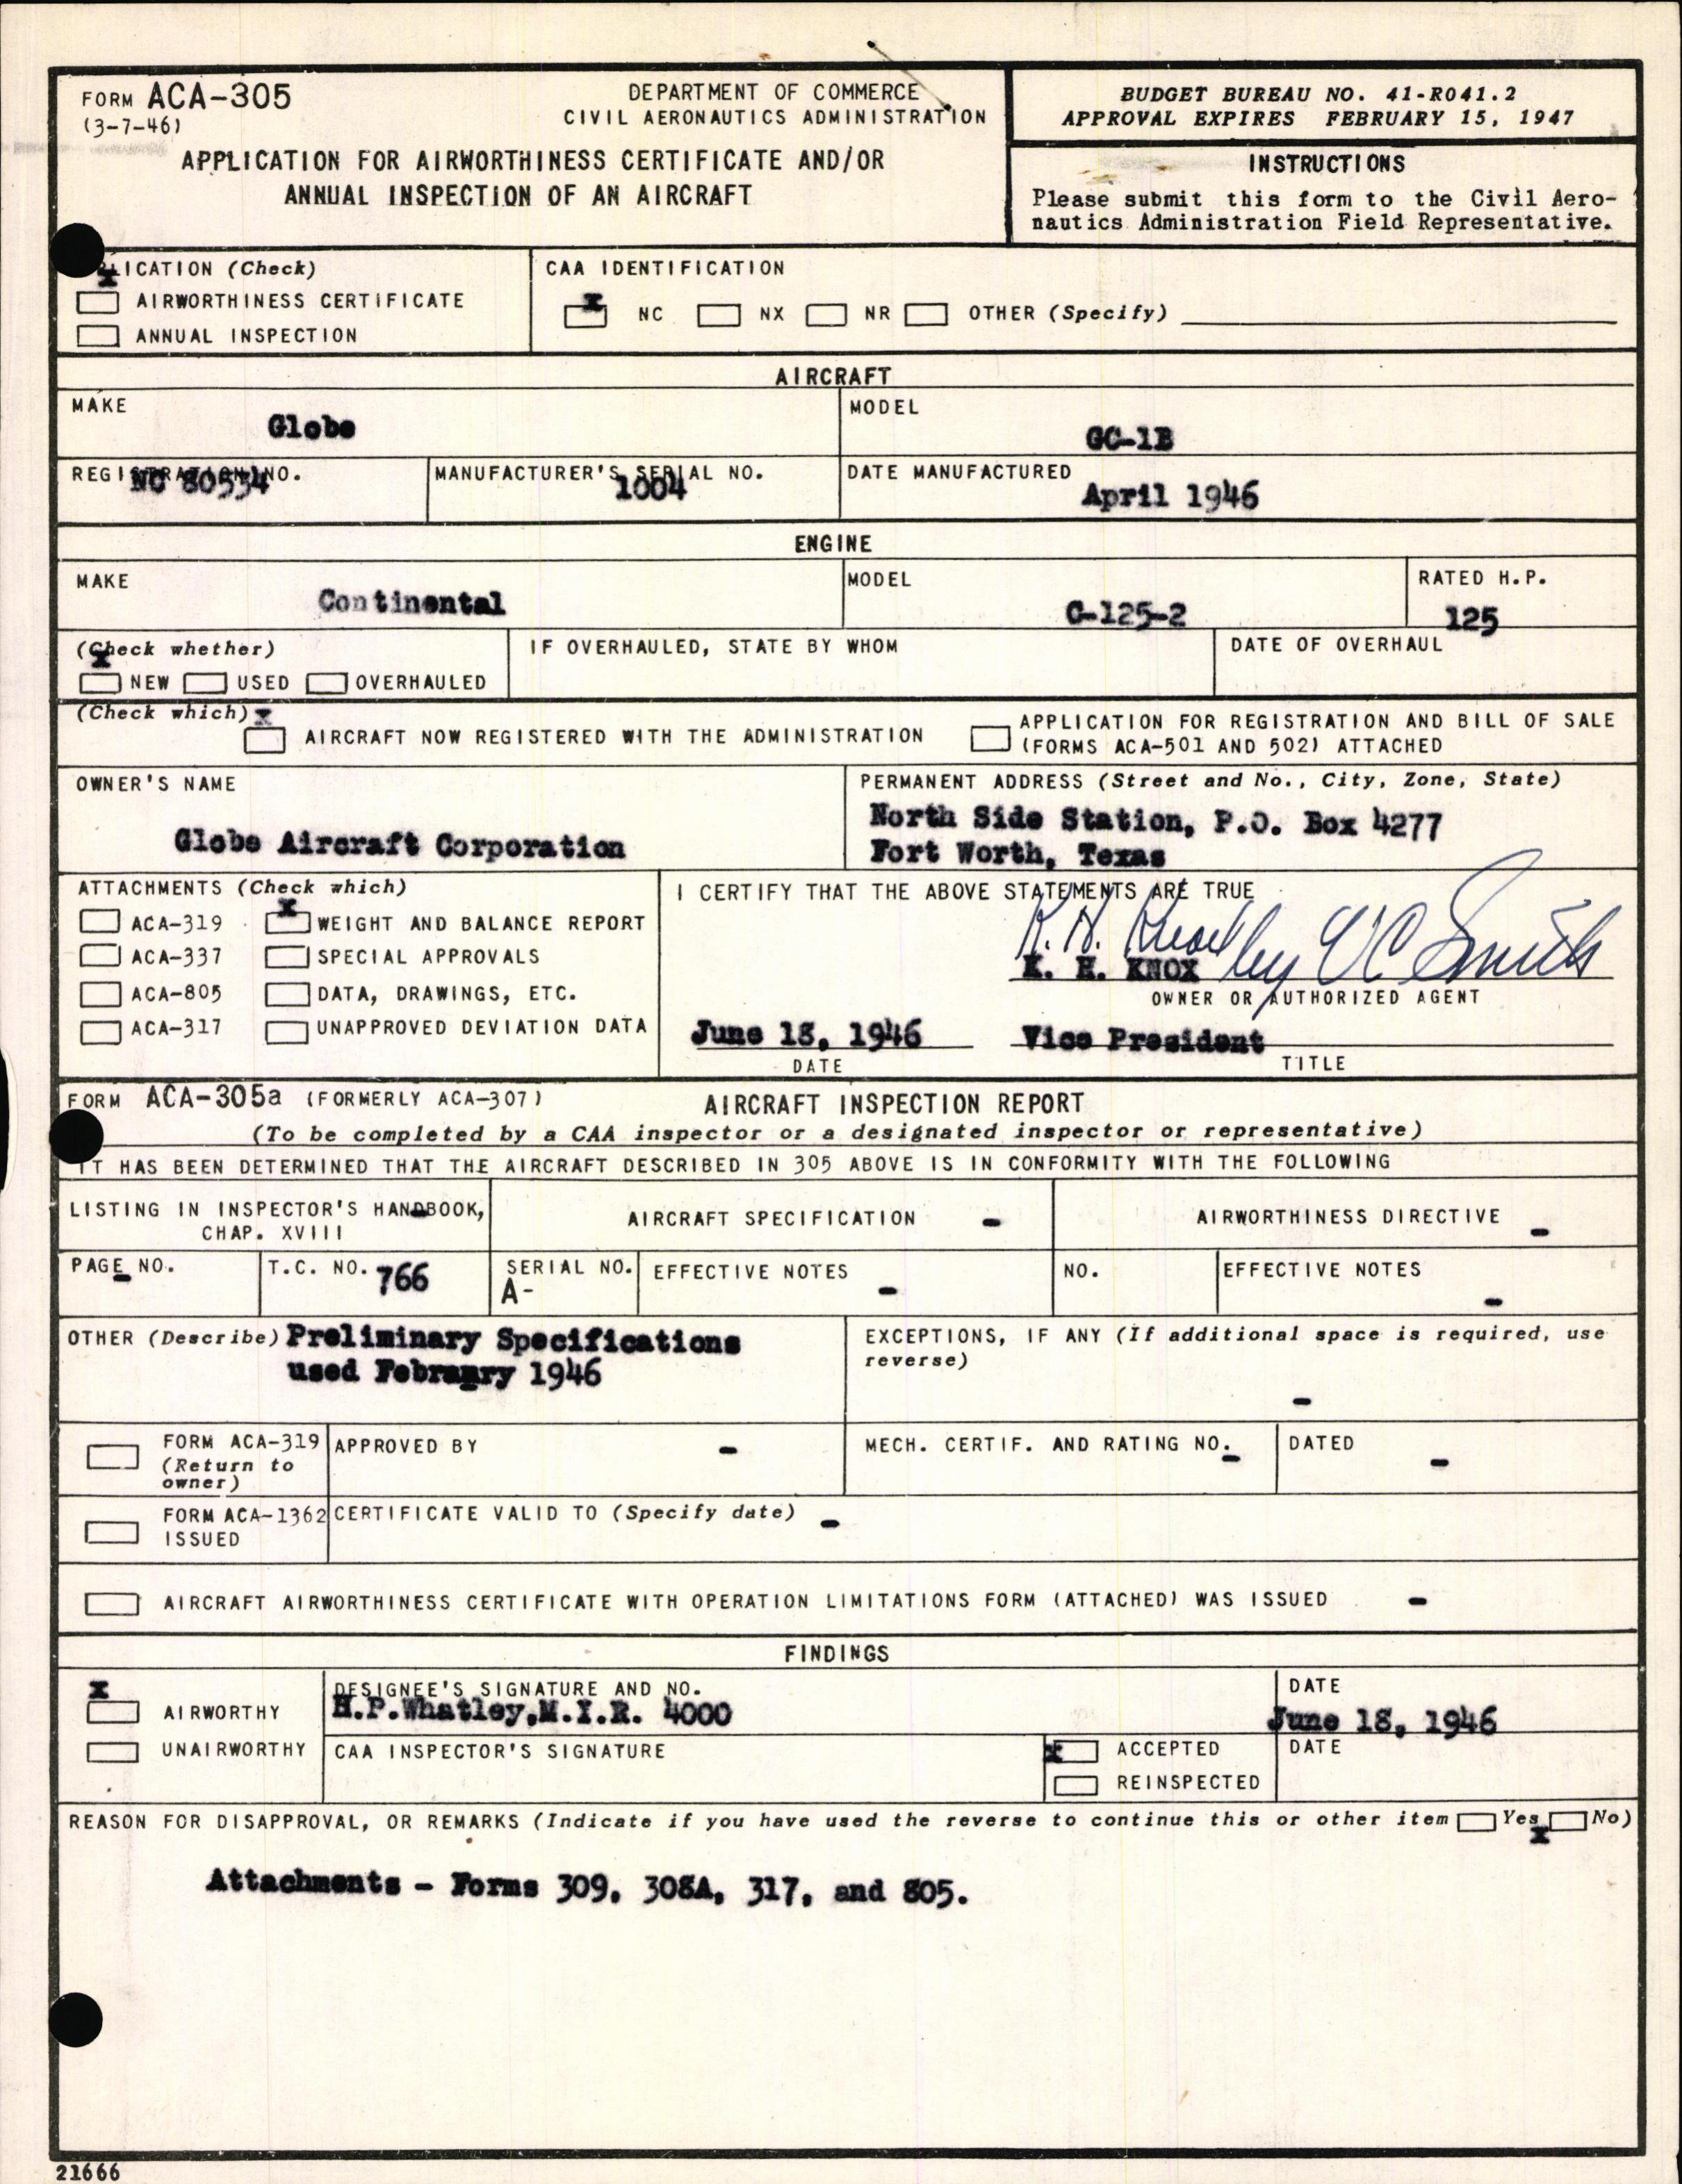 FORM ACA-305
(3-7-46)
DEPARTMENT OF COMMERCE
CIVIL AERONAUTICS ADMINISTRATION
APPLICATION FOR AIRWORTHINESS CERTIFICATE AND/OR
ANNUAL INSPECTION OF AN AIRCRAFT
BUDGET BUREAU NO. 41-R041.2
APPROVAL EXPIRES FEBRUARY 15, 1947
INSTRUCTIONS
Please submit this form to the Civil Aero-
nautics Administration Field Representative.
LICATION (Check)
X
AIRWORTHINESS CERTIFICATE
ANNUAL INSPECTION
CAA IDENTIFICATION
X NC NX NR OTHER (Specify)
AIRCRAFT
MAKE
Globe
MODEL
GC-1B
REGISTRATION NO.
NC 80534
MANUFACTURER'S SERIAL NO.
1004
DATE MANUFACTURED
April 1946
ENGINE
MAKE
Continental
MODEL
C-125-2
RATED H.P.
125
(Check whether)
X
NEW USED OVERHAULED
IF OVERHAULED, STATE BY WHOM
DATE OF OVERHAUL
(Check which) X
AIRCRAFT NOW REGISTERED WITH THE ADMINISTRATION
APPLICATION FOR REGISTRATION AND BILL OF SALE
(FORMS ACA-501 AND 502) ATTACHED
OWNER'S NAME
Globe Aircraft Corporation
PERMANENT ADDRESS (Street and No., City, Zone, State)
North Side Station, P.O. Box 4277
Fort Worth, Texas
ATTACHMENTS (Check which)
ACA-319 X WEIGHT AND BALANCE REPORT
ACA-337 SPECIAL APPROVALS
ACA-805 DATA, DRAWINGS, ETC.
ACA-317 UNAPPROVED DEVIATION DATA
I CERTIFY THAT THE ABOVE STATEMENTS ARE TRUE
K. H. Knox by VC Smith
K. H. KNOX
OWNER OR AUTHORIZED AGENT
June 18, 1946 Vice President
DATE TITLE
FORM ACA-305a (FORMERLY ACA-307) AIRCRAFT INSPECTION REPORT
(To be completed by a CAA inspector or a designated inspector or representative)
IT HAS BEEN DETERMINED THAT THE AIRCRAFT DESCRIBED IN 305 ABOVE IS IN CONFORMITY WITH THE FOLLOWING
LISTING IN INSPECTOR'S HANDBOOK,
CHAP. XVIII
-
AIRCRAFT SPECIFICATION -
AIRWORTHINESS DIRECTIVE -
PAGE NO. -
T.C. NO. 766
SERIAL NO.
A-
EFFECTIVE NOTES -
NO.
EFFECTIVE NOTES -
OTHER (Describe) Preliminary Specifications
used February 1946
EXCEPTIONS, IF ANY (If additional space is required, use
reverse)
-
FORM ACA-319
(Return to
owner)
APPROVED BY -
MECH. CERTIF. AND RATING NO. -
DATED -
FORM ACA-1362
ISSUED
CERTIFICATE VALID TO (Specify date) -
AIRCRAFT AIRWORTHINESS CERTIFICATE WITH OPERATION LIMITATIONS FORM (ATTACHED) WAS ISSUED -
FINDINGS
X
AIRWORTHY
UNAIRWORTHY
DESIGNEE'S SIGNATURE AND NO.
H.P.Whatley,M.I.R. 4000
DATE
June 18, 1946
CAA INSPECTOR'S SIGNATURE
X ACCEPTED
REINSPECTED
DATE
REASON FOR DISAPPROVAL, OR REMARKS (Indicate if you have used the reverse to continue this or other item Yes No)
X
Attachments - Forms 309, 308A, 317, and 805.
21666